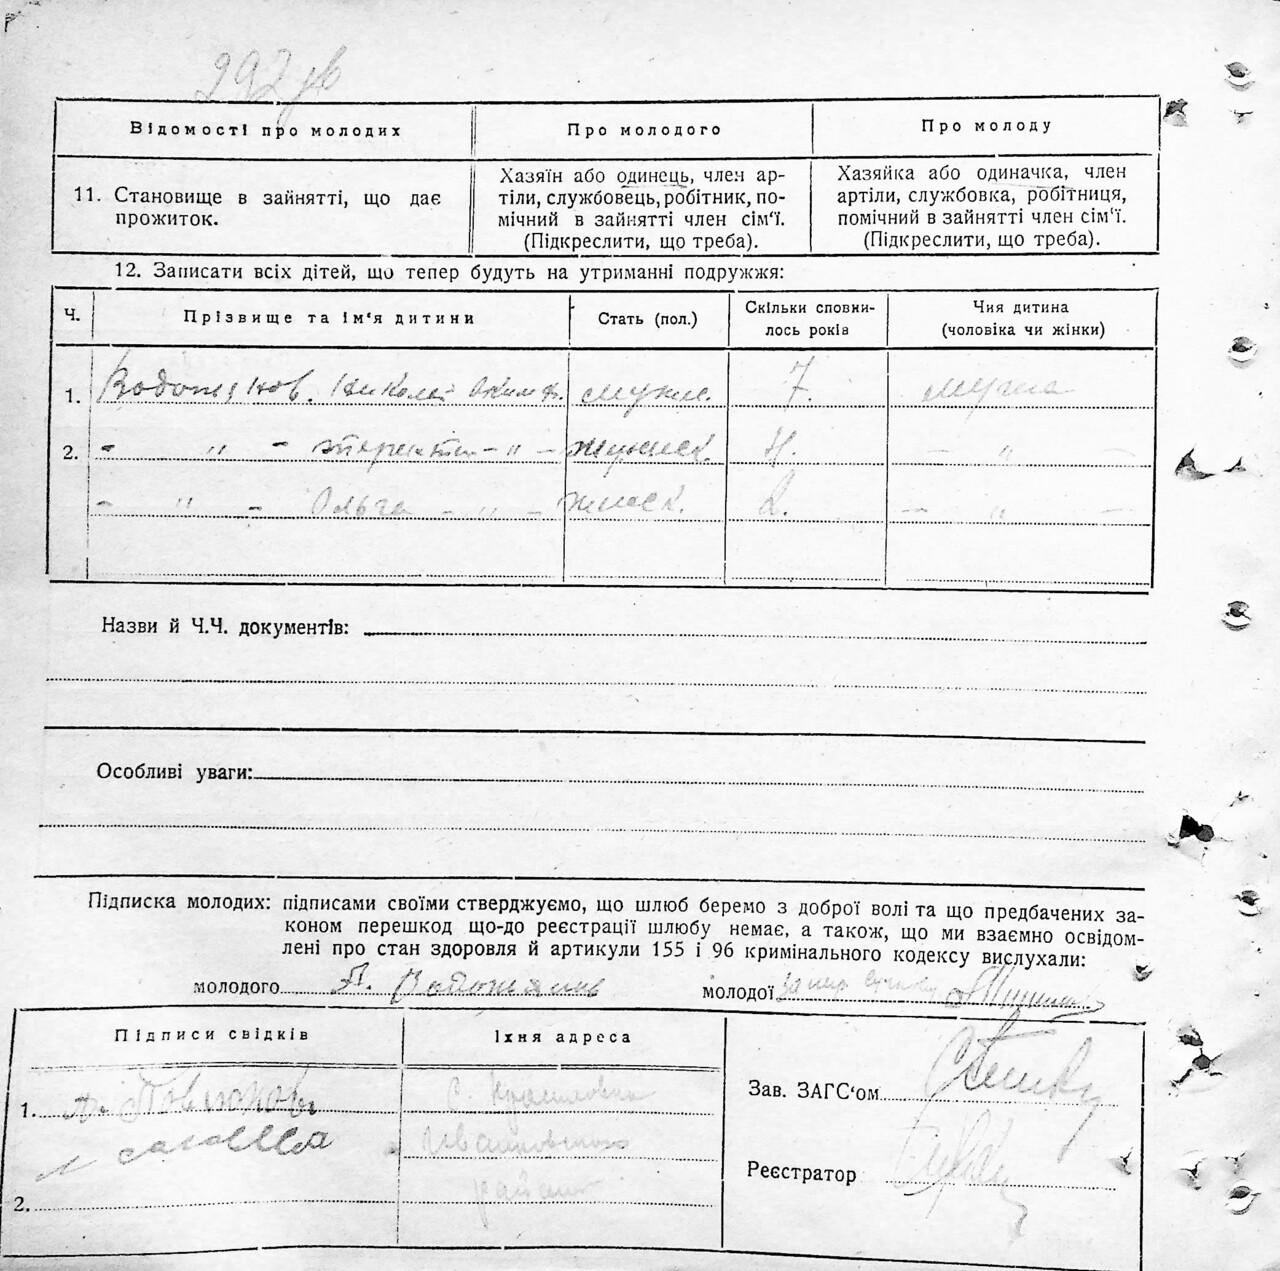 292
Відомості про молодих
Про молодого
Про молоду
11. Становище в зайнятті, що дає прожиток.
Хазяїн або одинець, член ар-
тіли, службовець, робітник, по-
мічний в зайнятті член сім'ї.
(Підкреслити, що треба).
Хазяйка або одиначка, член
артіли, службовка, робітниця,
помічний в зайнятті член сім'ї.
(Підкреслити, що треба).
12. Записати всіх дітей, що тепер будуть на утриманні подружжя:
Ч.
Прізвище та ім'я дитини
Стать (пол.)
Скільки сповни-
лось років
Чия дитина
(чоловіка чи жінки)
1. Водопянов. Николай муж. 7. мужа
2. - " - - " - 4. - " -
- " - Ольга - " - женск. 2. - " -
Назви й Ч.Ч. документів:
Особливі уваги:
Підписка молодих: підписами своїми стверджуємо, що шлюб беремо з доброї волі та що предбачених за-
коном перешкод що-до реєстрації шлюбу немає, а також, що ми взаємно освідом-
лені про стан здоровля й артикули 155 і 96 кримінального кодексу вислухали:
молодого
молодої
Підписи свідків
Їхня адреса
1.
С.
Ивановского
района
2.
Зав. ЗАГС'ом
Реєстратор